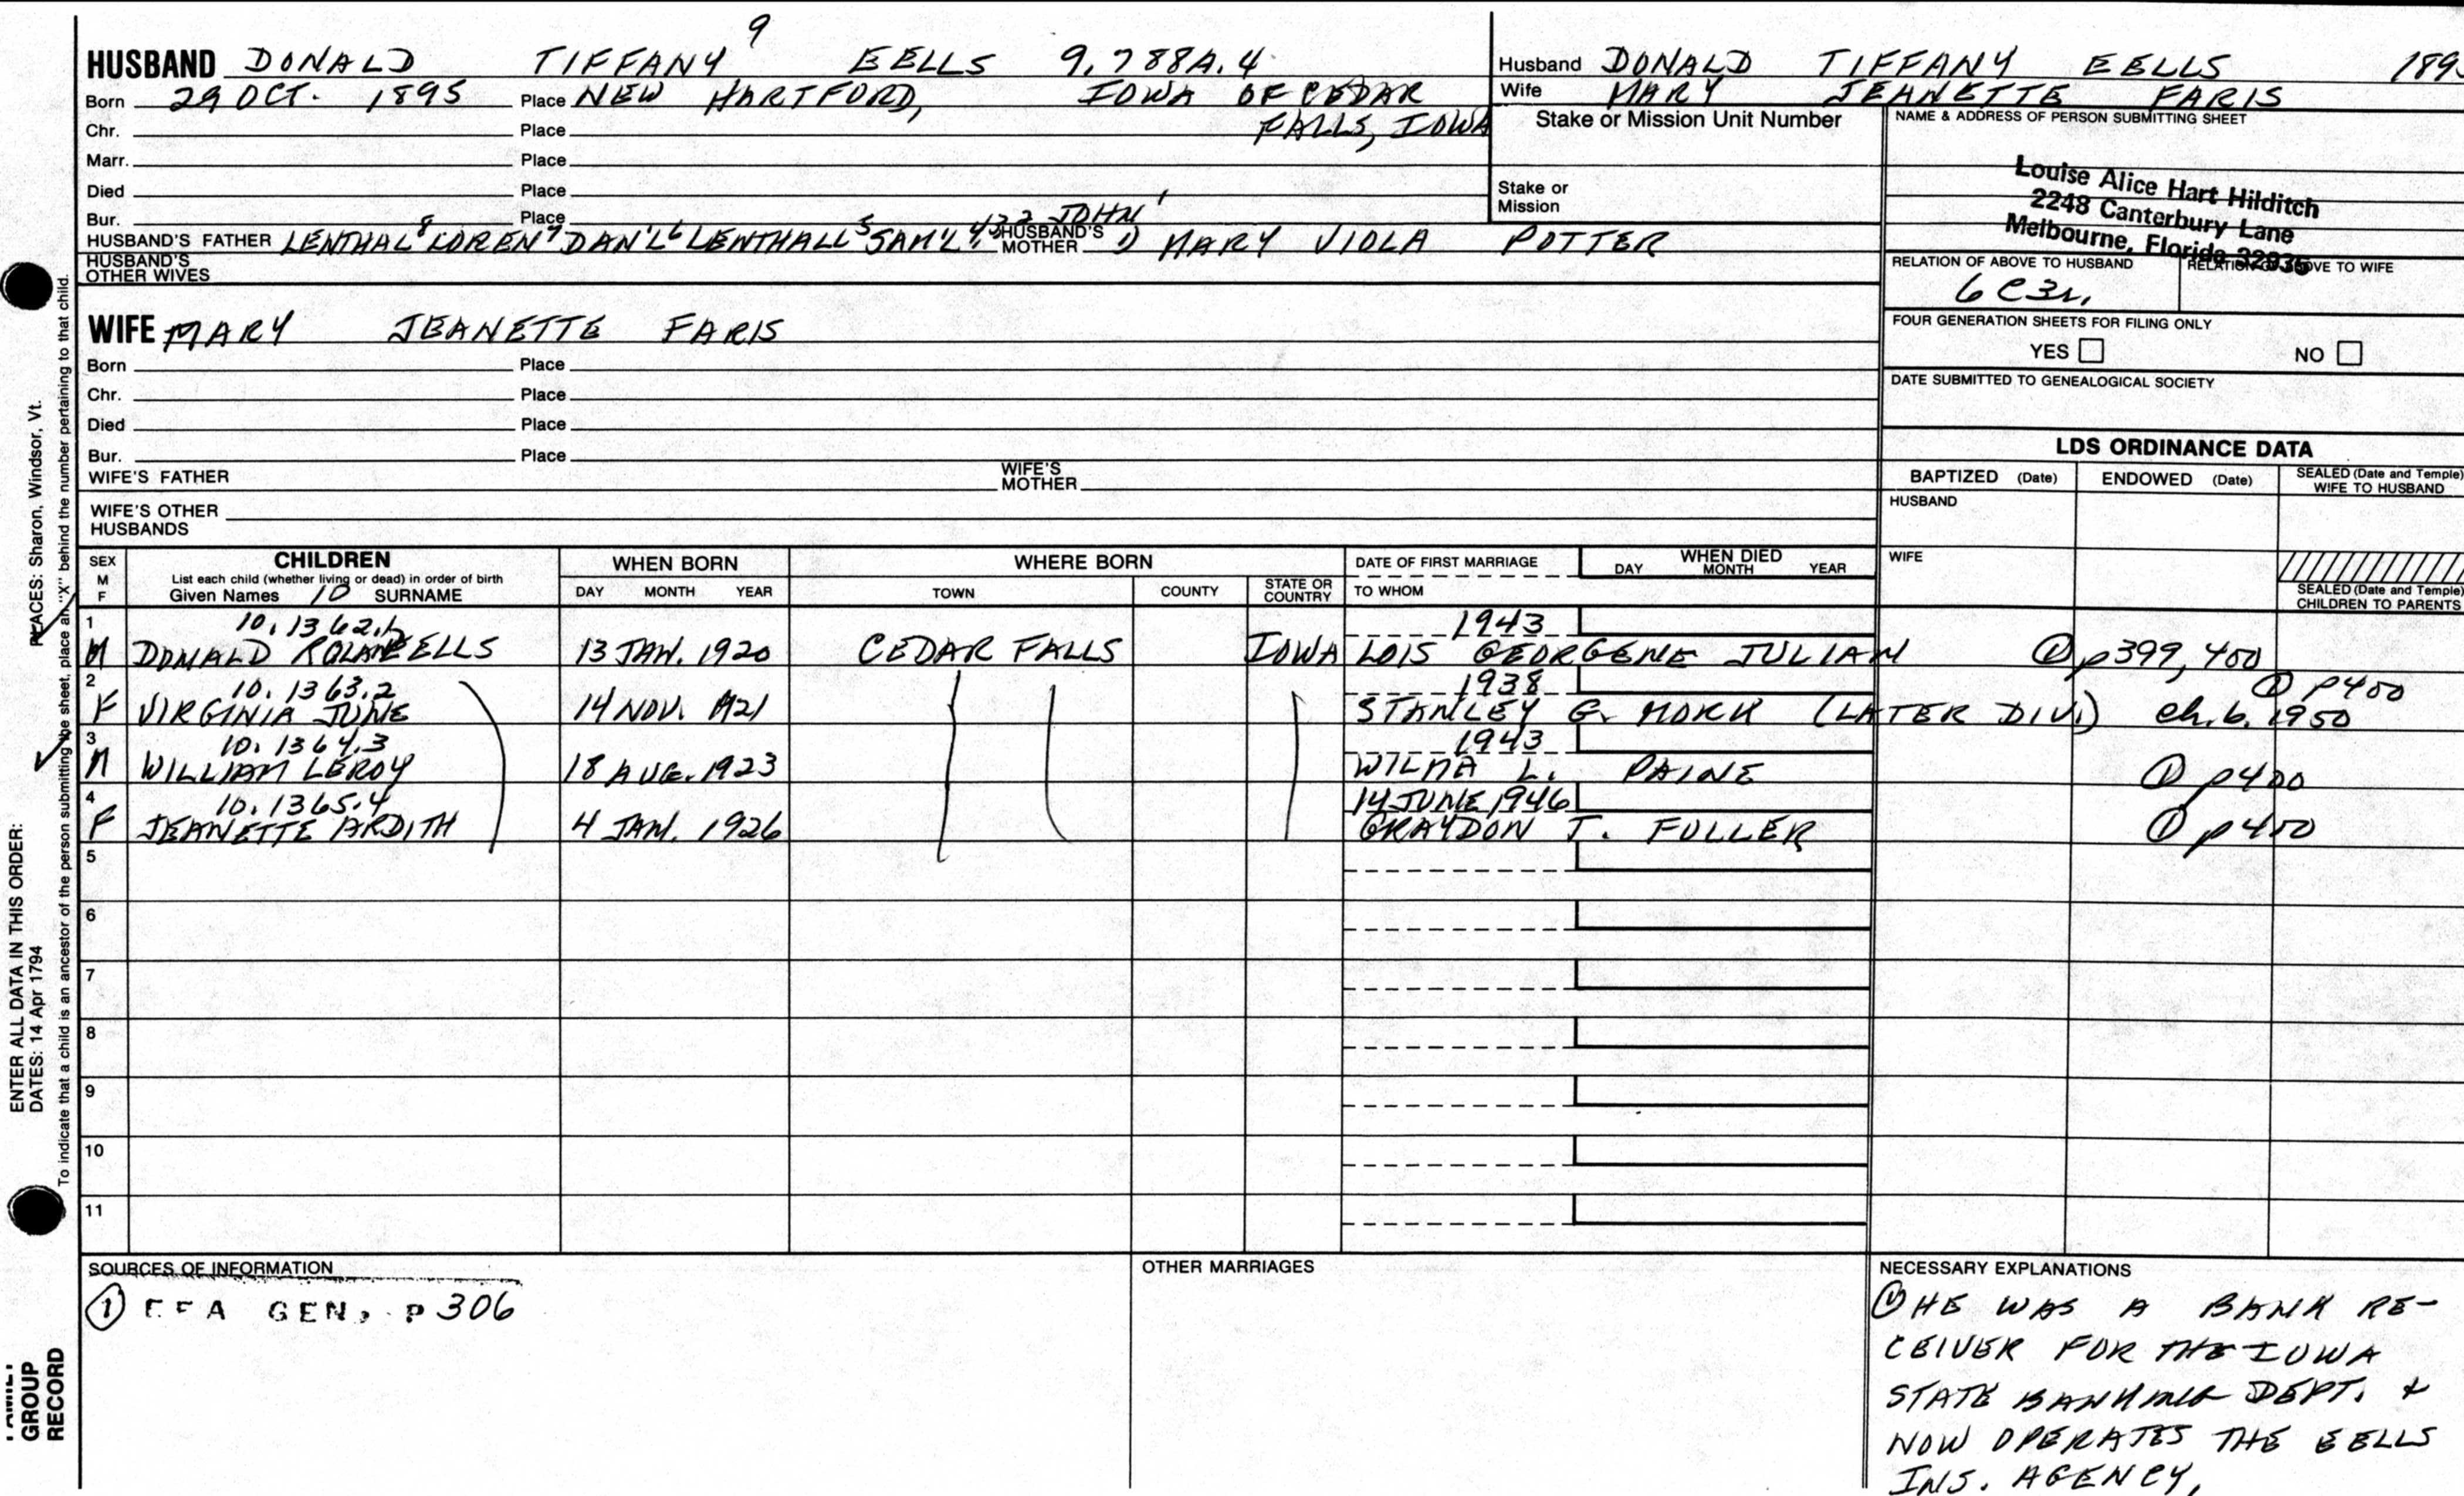 9
HUSBAND DONALD TIFFANY EELLS 9.788A.4
Born 29 OCT. 1895 Place NEW HARTFORD, IOWA OF CEDAR
Chr. Place FALLS, IOWA
Marr. Place
Died Place
Bur. Place
HUSBAND'S FATHER LENTHAL⁸ LOREN⁷ DAN'L⁶ LENTHALL⁵ SAM'L⁴,³,² JOHN¹ HUSBAND'S MOTHER 1) MARY VIOLA POTTER
HUSBAND'S OTHER WIVES
Husband DONALD TIFFANY EELLS 189
Wife MARY JEANETTE FARIS
Stake or Mission Unit Number
Stake or Mission
NAME & ADDRESS OF PERSON SUBMITTING SHEET
Louise Alice Hart Hilditch
2248 Canterbury Lane
Melbourne, Florida 32935
RELATION OF ABOVE TO HUSBAND RELATION OF ABOVE TO WIFE
6C3r.
FOUR GENERATION SHEETS FOR FILING ONLY
YES NO
DATE SUBMITTED TO GENEALOGICAL SOCIETY
WIFE MARY JEANETTE FARIS
Born Place
Chr. Place
Died Place
Bur. Place
WIFE'S FATHER WIFE'S MOTHER
WIFE'S OTHER HUSBANDS
LDS ORDINANCE DATA
BAPTIZED (Date) ENDOWED (Date) SEALED (Date and Temple) WIFE TO HUSBAND
HUSBAND
WIFE
SEALED (Date and Temple) CHILDREN TO PARENTS
SEX M F
CHILDREN
List each child (whether living or dead) in order of birth
Given Names 10 SURNAME
WHEN BORN
DAY MONTH YEAR
WHERE BORN
TOWN COUNTY STATE OR COUNTRY
DATE OF FIRST MARRIAGE
TO WHOM
WHEN DIED
DAY MONTH YEAR
1 10.1362.1 1943
M DONALD ROLAND EELLS 13 JAN. 1920 CEDAR FALLS IOWA LOIS GEORGENE JULIAN ① p399, 400
2 10.1363.2 1938 ① P400
F VIRGINIA JUNE 14 NOV. 1921 STANLEY G. MORK (LATER DIV.) ch. b. 1950
3 10.1364.3 1943
M WILLIAM LEROY 18 AUG. 1923 WILMA L. PAINE ① p400
4 10.1365.4 14 JUNE 1946
F JEANETTE ARDITH 4 JAN. 1926 GRAYDON T. FULLER ① p400
5
6
7
8
9
10
11
SOURCES OF INFORMATION
① EFA GEN, P 306
OTHER MARRIAGES
NECESSARY EXPLANATIONS
① HE WAS A BANK RE-
CEIVER FOR THE IOWA
STATE BANKING DEPT. &
NOW OPERATES THE EELLS
INS. AGENCY.
ENTER ALL DATA IN THIS ORDER:
DATES: 14 Apr 1794 PLACES: Sharon, Windsor, Vt.
To indicate that a child is an ancestor of the person submitting the sheet, place an "X" behind the number pertaining to that child.
FAMILY
GROUP
RECORD